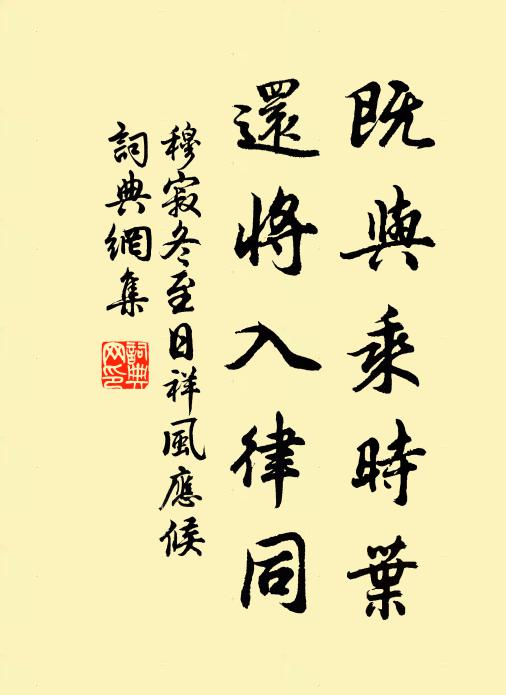 既與乘時葉
還將入律同
穆寂冬至日祥風應候
詞典網集
詞典
网印